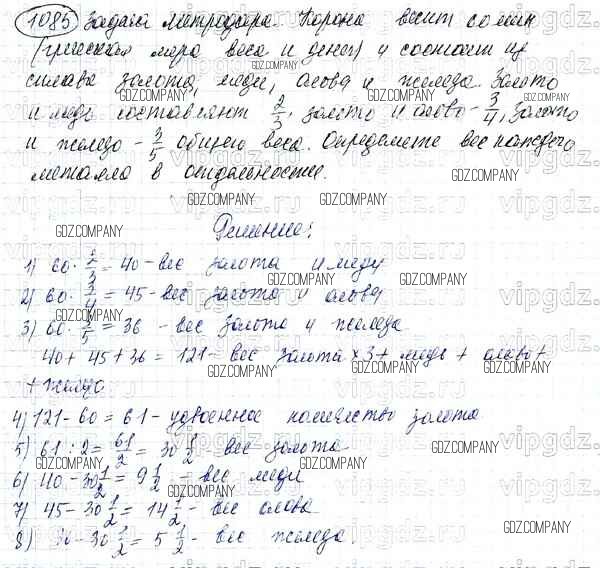 1085 Задача Метродора. Корона весит 60 мин
(греческая мера веса и денег) и состоит из
сплава золота, меди, олова и железа. Золото
и медь составляют 2/3, золото и олово - 3/4, золото
и железо - 3/5 общего веса. Определите вес каждого
металла в отдельности.
Решение:
1) 60 · 2/3 = 40 - вес золота и меди
2) 60 · 3/4 = 45 - вес золота и олова
3) 60 · 3/5 = 36 - вес золота и железа
40 + 45 + 36 = 121 - вес золота × 3 + медь + олово +
+ железо
4) 121 - 60 = 61 - удвоенное количество золота
5) 61 : 2 = 61/2 = 30 1/2 - вес золота
6) 40 - 30 1/2 = 9 1/2 - вес меди
7) 45 - 30 1/2 = 14 1/2 - вес олова
8) 36 - 30 1/2 = 5 1/2 - вес железа
GDZ.COMPANY
vipgdz.ru